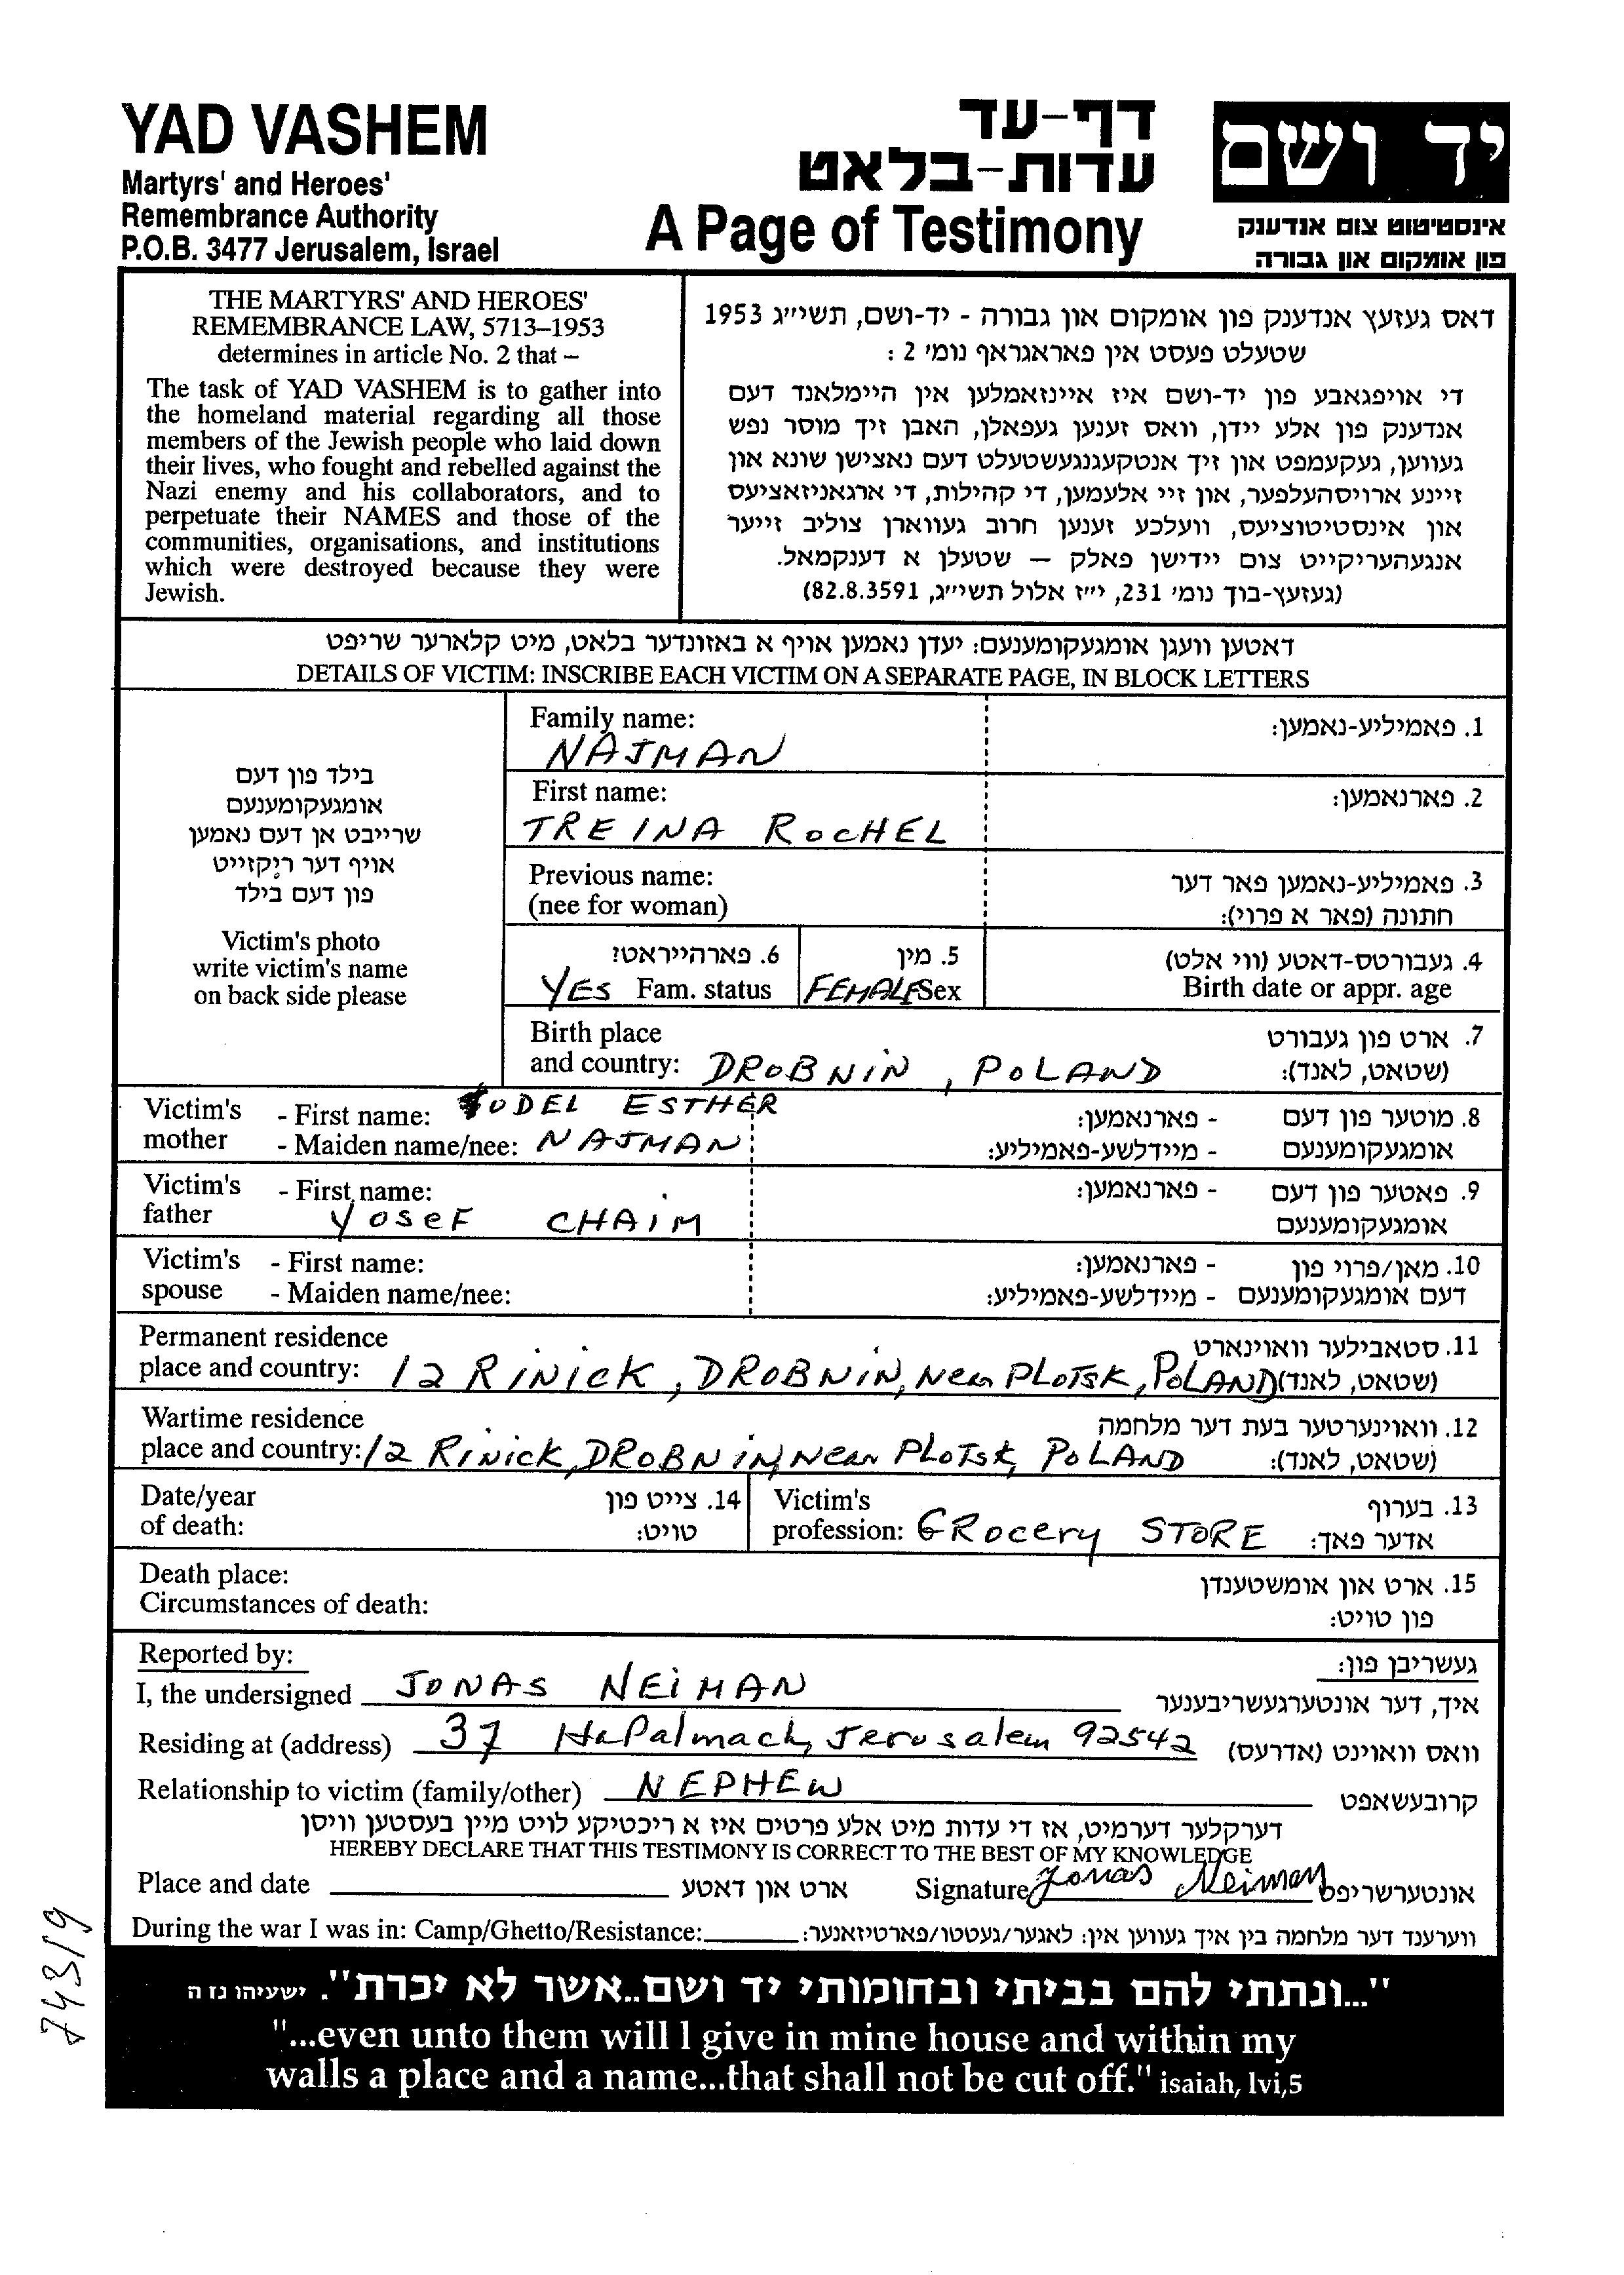 YAD VASHEM
Martyrs' and Heroes'
Remembrance Authority
P.O.B. 3477 Jerusalem, Israel
דף-עד
עדות-בלאט
A Page of Testimony
יד ושם
אינסטיטוט צום אנדענק
פון אומקום און גבורה
THE MARTYRS' AND HEROES'
REMEMBRANCE LAW, 5713–1953
determines in article No. 2 that –
The task of YAD VASHEM is to gather into
the homeland material regarding all those
members of the Jewish people who laid down
their lives, who fought and rebelled against the
Nazi enemy and his collaborators, and to
perpetuate their NAMES and those of the
communities, organisations, and institutions
which were destroyed because they were
Jewish.
דאס געזעץ אנדענק פון אומקום און גבורה - יד-ושם, תשי״ג 1953
שטעלט פעסט אין פאראגראף נומ׳ 2 :
די אויפגאבע פון יד-ושם איז איינזאמלען אין היימלאנד דעם
אנדענק פון אלע יידן, וואס זענען געפאלן, האבן זיך מוסר נפש
געווען, געקעמפט און זיך אנטקעגנגעשטעלט דעם נאצישן שונא און
זיינע ארויסהעלפער, און זיי אלעמען, די קהילות, די ארגאניזאציעס
און אינסטיטוציעס, וועלכע זענען חרוב געווארן צוליב זייער
אנגעהעריקייט צום יידישן פאלק — שטעלן א דענקמאל.
(געזעץ-בוך נומ׳ 231, י״ז אלול תשי״ג, 82.8.3591)
דאטען וועגן אומגעקומענעם: יעדן נאמען אויף א באזונדער בלאט, מיט קלארער שריפט
DETAILS OF VICTIM: INSCRIBE EACH VICTIM ON A SEPARATE PAGE, IN BLOCK LETTERS
בילד פון דעם
אומגעקומענעם
שרייבט אן דעם נאמען
אויף דער ריקזייט
פון דעם בילד
Victim's photo
write victim's name
on back side please
Family name: 1. פאמיליע-נאמען:
NAJMAN
First name: 2. פארנאמען:
TREINA ROCHEL
Previous name: 3. פאמיליע-נאמען פאר דער
(nee for woman) חתונה (פאר א פרוי):
6. פארהייראט? 5. מין 4. געבורטס-דאטע (ווי אלט)
YES Fam. status FEMALE Sex Birth date or appr. age
Birth place 7. ארט פון געבורט
and country: DROBNIN, POLAND (שטאט, לאנד):
Victim's - First name: YODEL ESTHER - פארנאמען: 8. מוטער פון דעם
mother - Maiden name/nee: NAJMAN - מיידלשע-פאמיליע: אומגעקומענעם
Victim's - First name: - פארנאמען: 9. פאטער פון דעם
father YOSEF CHAIM אומגעקומענעם
Victim's - First name: - פארנאמען: 10. מאן/פרוי פון
spouse - Maiden name/nee: - מיידלשע-פאמיליע: דעם אומגעקומענעם
Permanent residence 11. סטאבילער וואוינארט
place and country: 12 RINICK, DROBNIN, Near PLOTSK, POLAND (שטאט, לאנד)
Wartime residence 12. וואוינערטער בעת דער מלחמה
place and country: 12 RINICK, DROBNIN, Near PLOTSK, POLAND (שטאט, לאנד):
Date/year 14. צייט פון Victim's 13. בערוף
of death: טויט: profession: GROCERY STORE אדער פאך:
Death place: 15. ארט און אומשטענדן
Circumstances of death: פון טויט:
Reported by: געשריבן פון:
I, the undersigned JONAS NEIMAN איך, דער אונטערגעשריבענער
Residing at (address) 37 HaPalmach, Jerusalem 92542 וואס וואוינט (אדרעס)
Relationship to victim (family/other) NEPHEW קרובעשאפט
דערקלער דערמיט, אז די עדות מיט אלע פרטים איז א ריכטיקע לויט מיין בעסטען וויסן
HEREBY DECLARE THAT THIS TESTIMONY IS CORRECT TO THE BEST OF MY KNOWLEDGE
Place and date ארט און דאטע Signature Jonas Neiman אונטערשריפט
During the war I was in: Camp/Ghetto/Resistance: ווערענד דער מלחמה בין איך געווען אין: לאגער/געטטו/פארטיזאנער:
743/9
"...ונתתי להם בביתי ובחומותי יד ושם..אשר לא יכרת". ישעיהו נז ה
"...even unto them will I give in mine house and within my
walls a place and a name...that shall not be cut off." isaiah, lvi,5